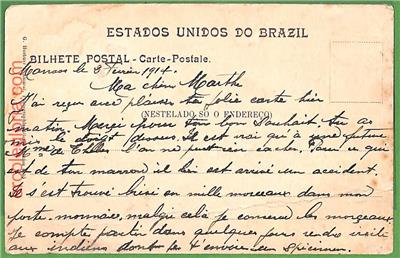 ESTADOS UNIDOS DO BRAZIL
BILHETE POSTAL - Carte-Postale.
Manaos le 3 Février 1914.
Ma chère Marthe
J'ai reçu avec plaisir ta jolie carte hier
(NESTE LADO SÓ O ENDEREÇO)
matin. Merci pour ton bon souhait, tu as
mis le doigt dessus. Il est vrai qu'à une future
Mme de l'on ne peut rien cacher. Pour ce qui
est de ton marron il lui est arrivé un accident.
il s'est trouvé brisé en mille morceaux dans mon
porte-monnaie, malgré cela je conserve les morceaux
Je compte partir dans quelques jours rendre visite
aux indiens dont je t'envoie un spécimen.